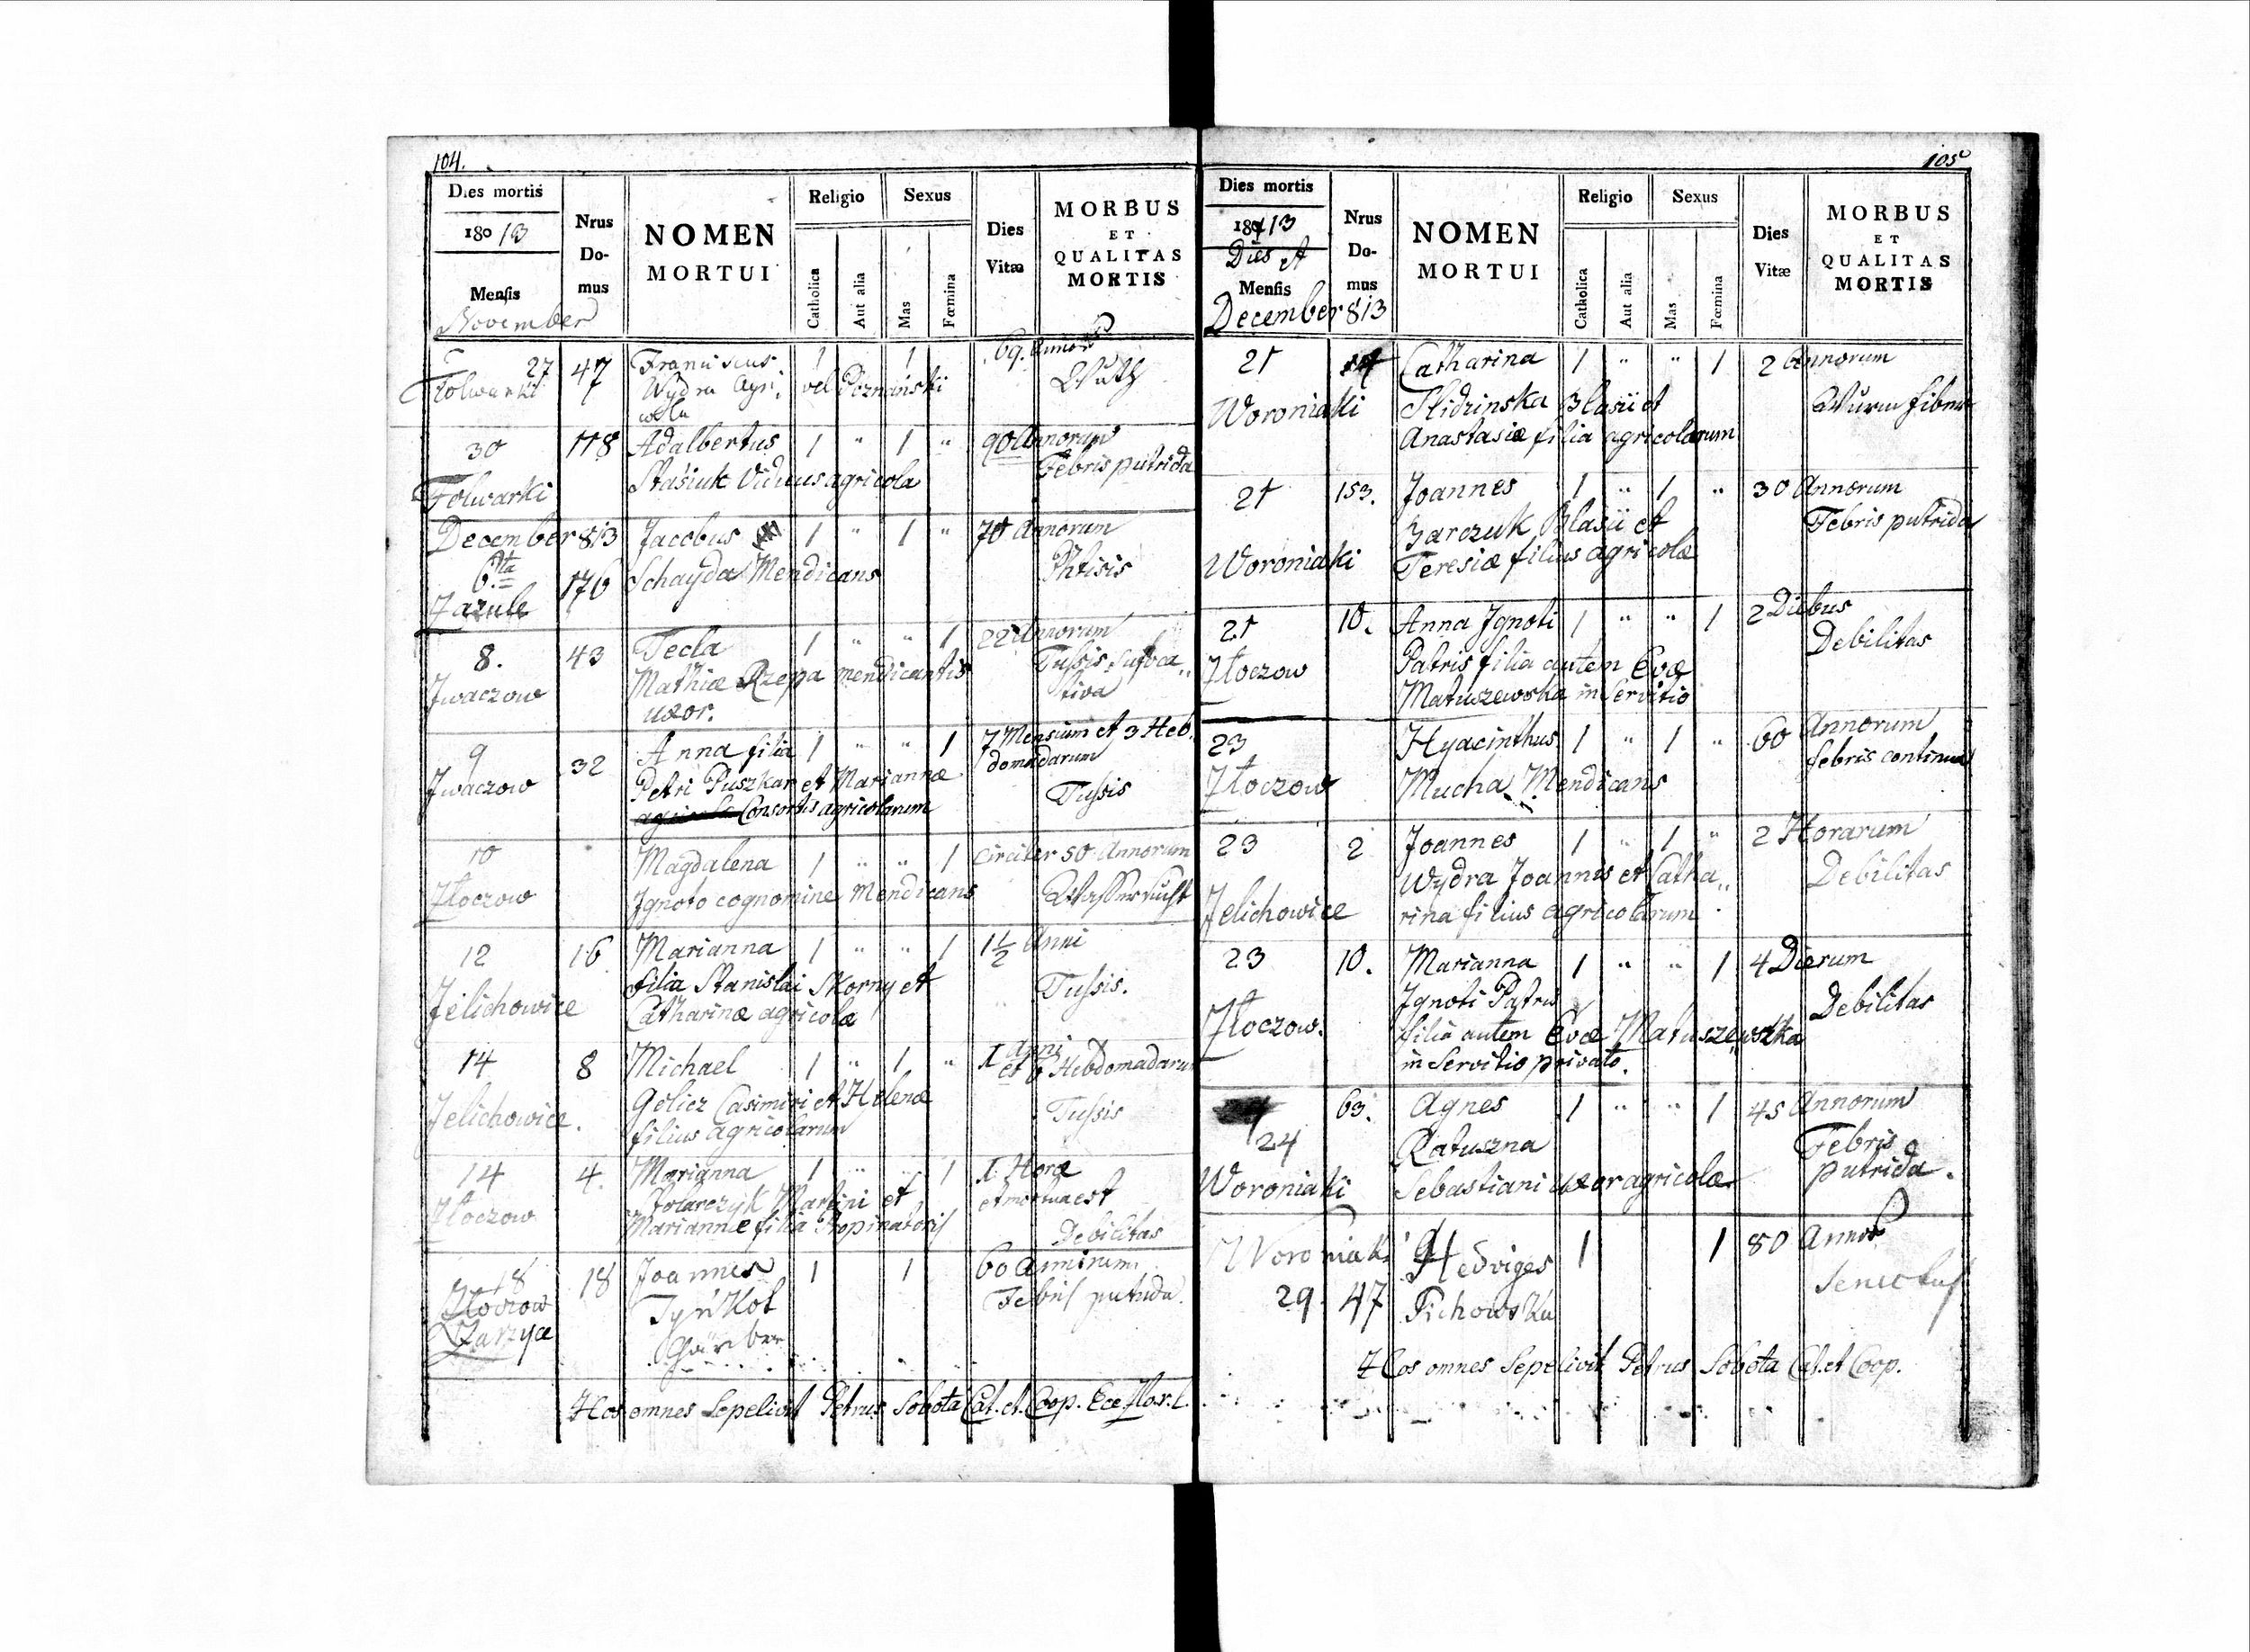 104.
Dies mortis
1803/13
Mensis
November
Nrus Do- mus
NOMEN MORTUI
Religio
Catholica
Aut alia
Sexus
Mas
Fœmina
Dies Vitæ
MORBUS ET QUALITAS MORTIS
27 47 Franciscus 1 1 69. Annor
Folwarki Wydra Agri- vel Poznański Wuth
cola
30 118 Adalbertus 1 " 1 " 90 Annorum
Febris putrida
Folwarki Staśiuk Viduus agricola
December 813 Jacobus 1 " 1 " 70 Annorum
6ta 176 Schayda Mendicans Phtisis
Zazule
8. 43 Tecla 1 " " 1 22 Annorum
Jwaczow Mathiæ Rzepa mendicantis Tussis sufoca„
uxor. tiva
9 32 Anna filia 1 " " 1 7 Mensium et 3 Heb.
domadarum
Jwaczow Petri Puszkar et Mariannæ Tussis
Consortis agricolarum
10 Magdalena 1 " " 1 Circiter 50 Annorum
Złoczow Ignoto cognomine Mendicans Wassersucht
12 16 Marianna 1 " " 1 1½ Anni
filia Stanislai Skorny et Tussis.
Jelichowice Catharinæ agricolæ
14 8 Michael 1 " 1 " I Anni
et 6 Hebdomadarum
Jelichowice. Golicz Casimiri et Helenæ Tussis
filius agricolarum
14 4. Marianna 1 " " 1 I Horæ
Złoczow Martini et et mortua est
Mariannæ filia Propinatoris Debilitas
18 18 Joannes 1 1 60 Annorum
Złoczow Febris putrida.
Zarzyce
Hos omnes Sepelivit Petrus Sobota Cat. et. Coop. Ecc. Złoz. L.
105
Dies mortis
180/13
Dies et
Mensis
December 813
Nrus Do- mus
NOMEN MORTUI
Religio
Catholica
Aut alia
Sexus
Mas
Fœmina
Dies Vitæ
MORBUS ET QUALITAS MORTIS
21 Catharina 1 " " 1 2 Annorum
Woroniaki Slidzinska Blasii et Wurm fiber
Anastasiæ filia agricolarum
21 153. Joannes 1 " 1 " 30 Annorum
Barczuk Blasii et Febris putrida
Woroniaki Teresiæ filius agricolæ
21 10. Anna Ignoti 1 " " 1 2 Diebus
Debilitas
Złoczow Patris filia autem Evæ
Matuszewska in Servitio
23 Hyacinthus 1 " 1 " 60 Annorum
febris continua
Złoczow Mucha Mendicans
23 2 Joannes 1 " 1 " 2 Horarum
Wydra Joannis et Catha„ Debilitas
Jelichowice rina filius agricolarum
23 10. Marianna 1 " " 1 4 Dierum
Ignoti Patris Debilitas
Złoczow. filia autem Evæ Matuszewska
in Servitio privato.
63. Agnes 1 " " 1 45 Annorum
24 Ratuszna Febris
putrida.
Woroniaki Sebastiani uxor agricolæ
Woroniaki Hedviges 1 1 80 Annor
Senectus
29. 47 Pichowska
Hos omnes Sepelivit Petrus Sobota Cat. et Coop.